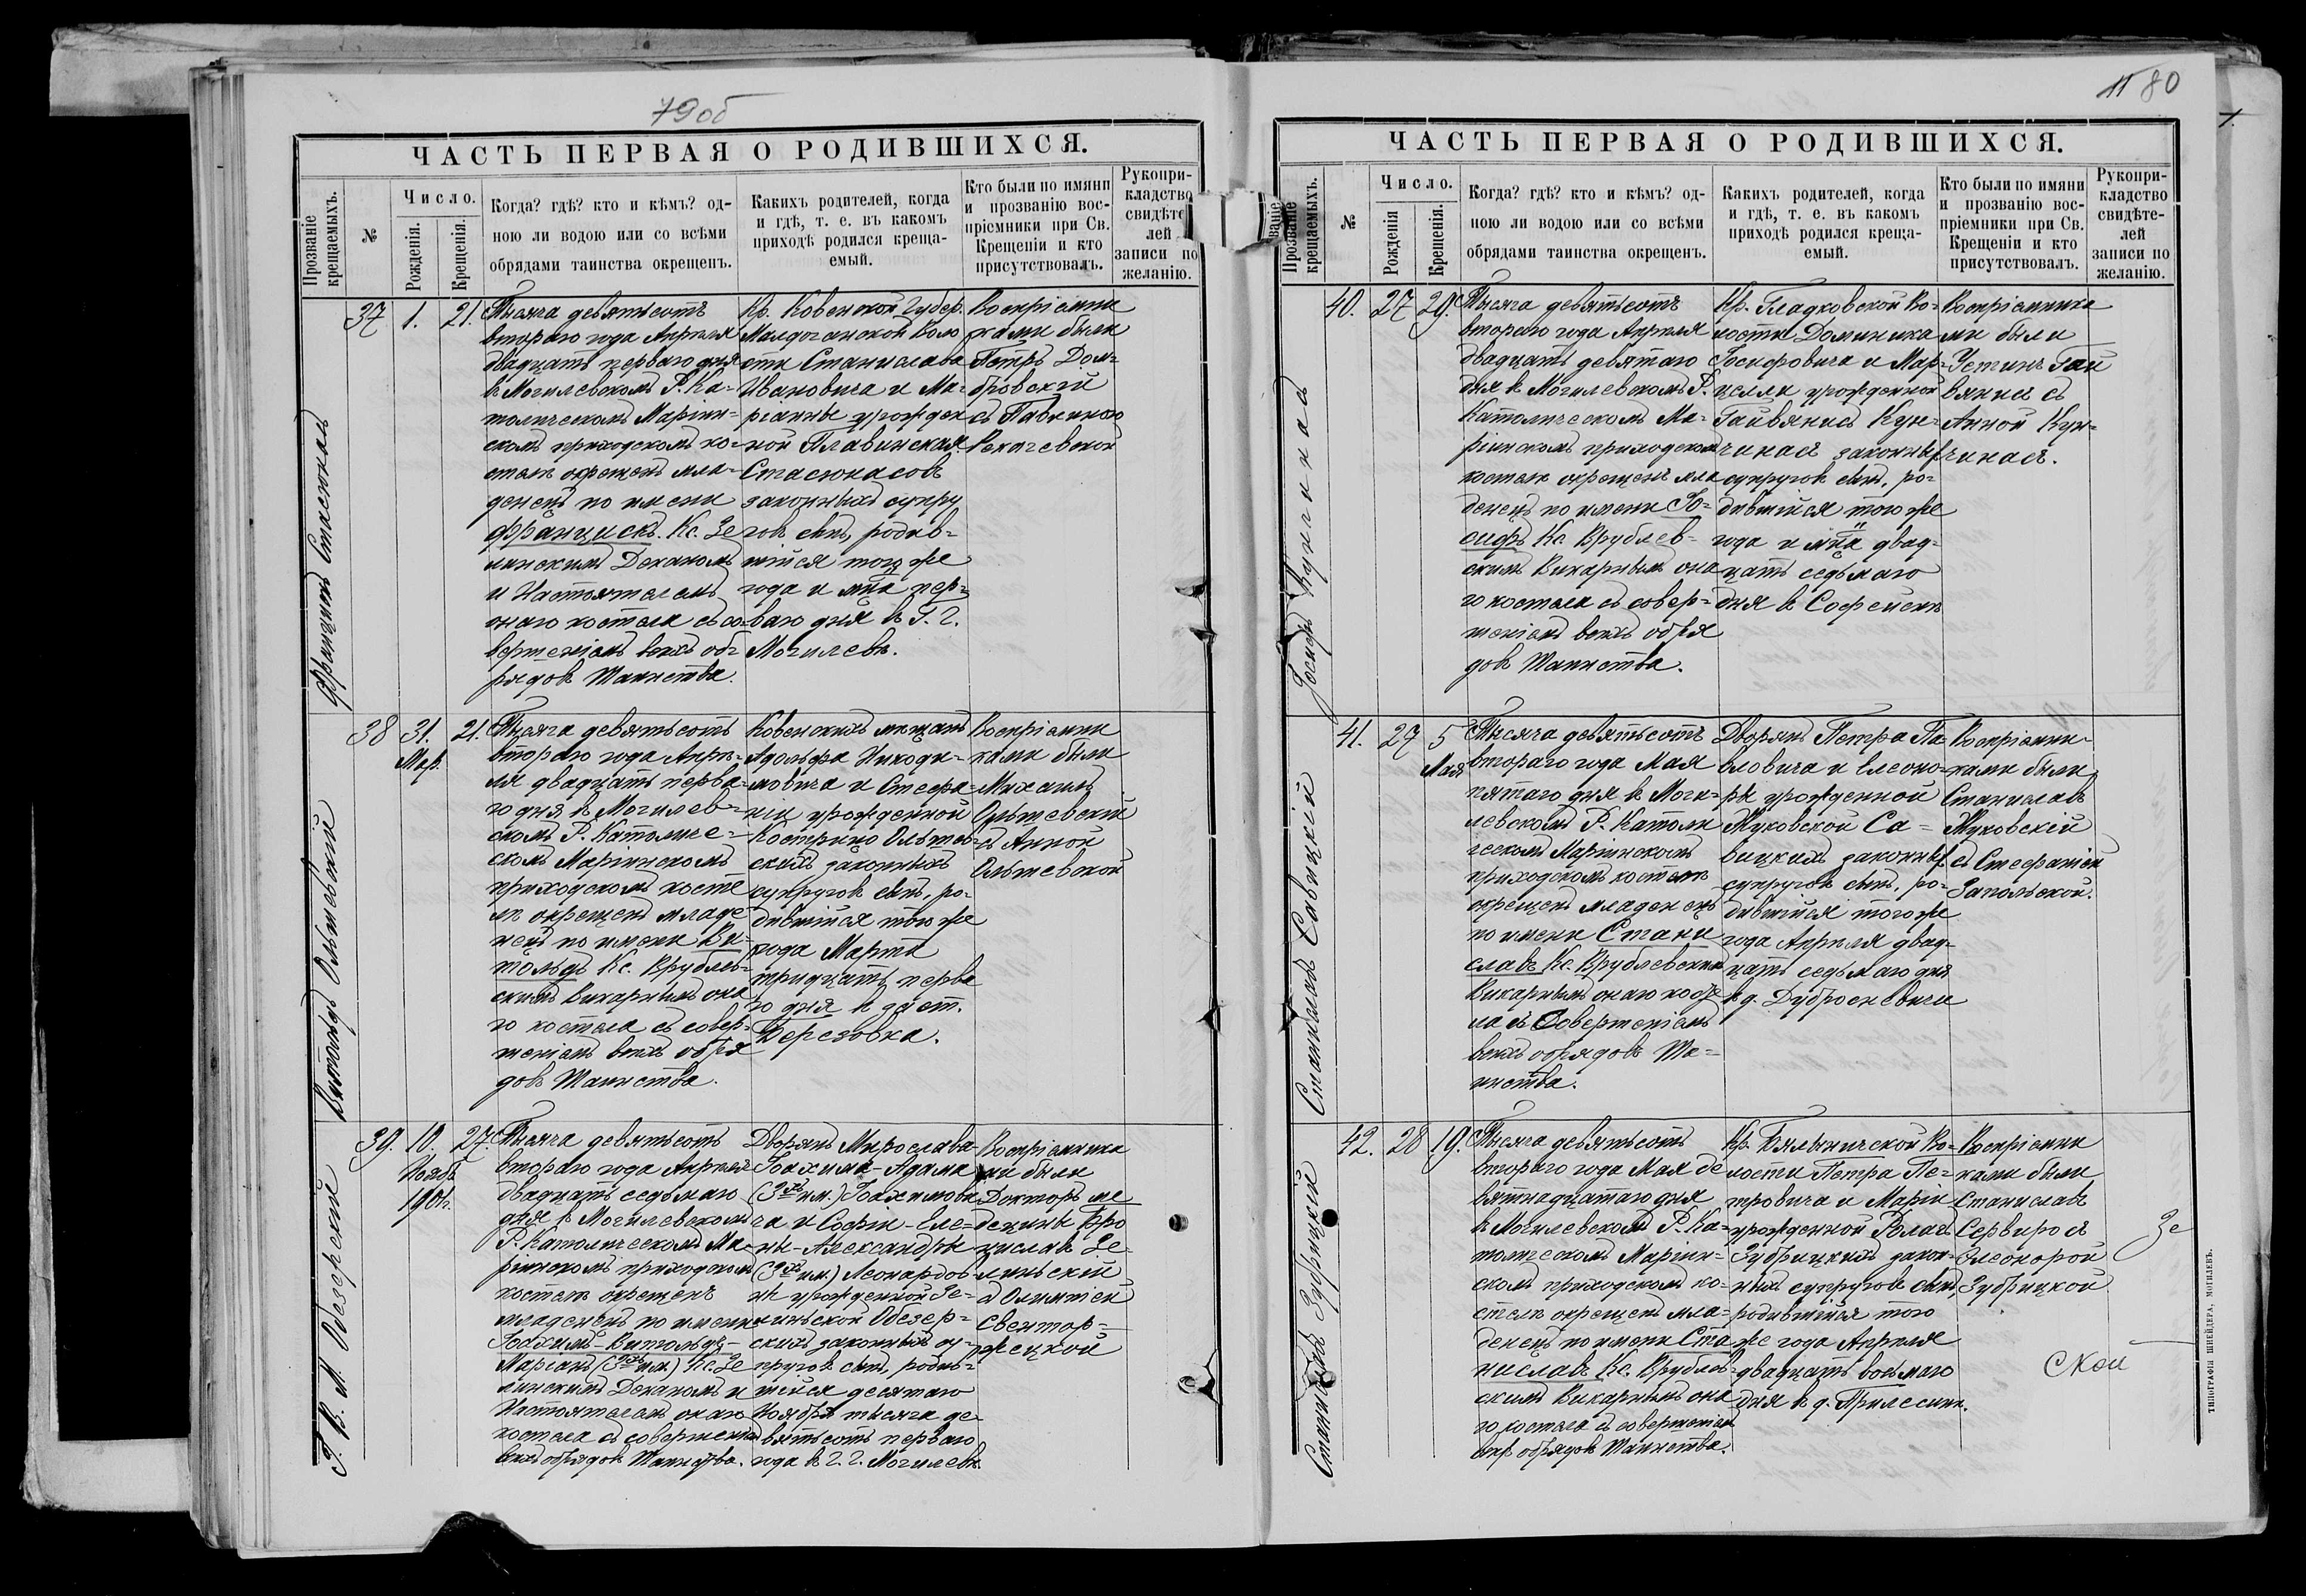 79об
ЧАСТЬ ПЕРВАЯ О РОДИВШИХСЯ.
Прозваніе крещаемыхъ.
№
Число.
Рожденія.
Крещенія.
Когда? гдѣ? кто и кѣмъ? од-
ною ли водою или со всѣми
обрядами таинства окрещенъ.
Какихъ родителей, когда
и гдѣ, т. е. въ какомъ
приходѣ родился креща-
емый.
Кто были по имяни
и прозванію вос-
пріемники при Св.
Крещеніи и кто
присутствовалъ.
Рукопри-
кладство
свидѣте
лей
записи по
желанію.
Францишкъ Стасюнасъ
37
1.
21.
Тысяча девятьсотъ
втораго года Апрѣля
двадцать перваго дня
въ Могилевскомъ Р. Ка-
толическомъ Маріин-
скомъ приходскомъ ко-
стелѣ окрещенъ мла-
денецъ по имени
Францискъ. Кс. Зе
линскимъ Деканомъ
и Настоятелемъ
онаго костела съ со-
вершеніемъ всѣхъ об-
рядовъ Таинства.
Кр. Ковенской Губер.
Волo
сти Станислава
Ивановича и Ма-
ріанны урожден
ной Плавинская
Стасюнасовъ
законныхъ супру
говъ сынъ, родив-
шійся того же
года и мца пер-
ваго дня въ Г. Г.
Могилевѣ.
Воспріемни
ками были
Петръ Дом-
бровскій
съ Павлиною
Рекачевской
Витольдъ Ольшевскій
38
31.
Мар.
21.
Тысяча девятьсотъ
втораго года Апрѣ-
ля двадцать перва-
го дня въ Могилев-
скомъ Р. Католиче-
скомъ Маріинскомъ
приходскомъ косте
лѣ окрещенъ младе
нецъ по имени Ви-
тольдъ Кс. Врублев-
скимъ Викарнымъ она
го костела съ совер-
шеніемъ всѣхъ обря
довъ Таинства.
Ковенскихъ мѣщанъ
Адольфа Никоди-
мовича и Стефа-
ніи урожденной
Ольшев-
скихъ законныхъ
супруговъ сынъ, ро-
дившійся того же
года Марта
тридцать перва
го дня въ заст.
Березовка.
Воспріемни
ками были
Михаилъ
Ольшевскій
съ Анной
Ольшевской
І. В. М. Обезерскій
39.
10.
Нояб.
1901г.
27.
Тысяча девятьсотъ
втораго года Апрѣля
двадцать седьмаго
дня въ Могилевскомъ
Р. Католическомъ Ма-
ріинскомъ приходскомъ
костелѣ окрещенъ
младенецъ по имени
Іоахимъ-Витольдъ-
Маріанъ (3хъ им.) Кс. Зе
линскимъ Деканомъ и
Настоятелемъ онаго
костела съ совершеніемъ
всѣхъ обрядовъ Таинства.
Дворянъ Мирослава-
Іоахима-Адама
(3хъ им.) Іоахимови
ча и Софіи-Еле-
ны-Александры
(3хъ им.) Леонардов-
ны урожденной Зе-
линьской Обезер-
скихъ законныхъ су-
пруговъ сынъ, родив-
шійся десятаго
Ноября тысяча де-
вятьсотъ перваго
года въ Г. Г. Могилевѣ
Воспріемника
ми были
Докторъ ме
децины Бро
ниславъ Зе-
линьскій
съ Олимпіей
Свентор-
жецкой
11 80
ЧАСТЬ ПЕРВАЯ О РОДИВШИХСЯ.
Прозваніе крещаемыхъ.
№
Число.
Рожденія
Крещенія.
Когда? гдѣ? кто и кѣмъ? од-
ною ли водою или со всѣми
обрядами таинства окрещенъ.
Какихъ родителей, когда
и гдѣ, т. е. въ какомъ
приходѣ родился креща-
емый.
Кто были по имяни
и прозванію вос-
пріемники при Св.
Крещеніи и кто
присутствовалъ.
Рукопри-
кладство
свидѣте-
лей
записи по
желанію.
Іосифъ Кунчинасъ
40.
27
29.
Тысяча девятьсотъ
втораго года Апрѣля
двадцать девятаго
дня въ Могилевскомъ Р.
Католическомъ Ма-
ріинскомъ приходскомъ
костелѣ окрещенъ мла
денецъ по имени Іо-
сифъ Кс. Врублев-
скимъ Викарнымъ она
го костела съ совер-
шеніемъ всѣхъ обря
довъ Таинства.
Кр. Гладковской Во-
лости Доминика
Іосифовича и Мар-
целли урожденной
Гайвянисъ Кун-
чинасъ законныхъ
супруговъ сынъ, ро-
дившійся того же
года и мца двад-
цать седьмаго
дня въ Софейскѣ
Воспріемника
ми были
Устинъ Гай
вянисъ съ
Анной Кун-
чинасъ.
Станиславъ Савицкій
41.
27
5
Мая
Тысяча девятьсотъ
втораго года Мая
пятаго дня въ Моги-
левскомъ Р. Католи
ческомъ Маріинскомъ
приходскомъ костелѣ
окрещенъ младенецъ
по имени Стани
славъ Кс. Врублевскимъ
Викарнымъ онаго косте
ла съ Совершеніемъ
всѣхъ обрядовъ Та-
инства.
Дворянъ Петра Па-
вловича и Елеоно-
ры урожденной
Жуковской Са-
вицкихъ законныхъ
супруговъ сынъ, ро-
дившійся того же
года Апрѣля двад-
цать седьмаго дня
въ д. Дубросневичи
Воспріемни-
ками были
Станиславъ
Жуковскій
съ Стефаніей
Запольской.
Станиславъ Зубрицкій
42.
28
19.
Тысяча девятьсотъ
втораго года Мая де
вятнадцатаго дня
въ Могилевскомъ Р. Ка-
толическомъ Маріин-
скомъ приходскомъ ко-
стелѣ окрещенъ мла-
денецъ по имени Ста
ниславъ Кс. Врублев-
скимъ Викарнымъ она
го костела съ совершеніемъ
всѣхъ обрядовъ Таинства.
Кр. Бялыничской Во-
лости Петра Пе-
тровича и Маріи
урожденной
Зубрицкихъ закон-
ныхъ супруговъ сынъ,
родившійся того
же года Апрѣля
двадцать восьмаго
дня въ д. Прилесини.
Воспріемни
ками были
Станиславъ
Сервиросъ
Элеонорой
Зубрицкой
Зе
ской
ТИПОГРАФІЯ ШНЕЙДЕРА, МОГИЛЕВЪ.